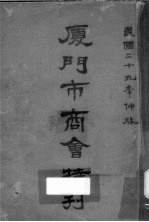 民國二十九年仲秋
厦門市商會特刊